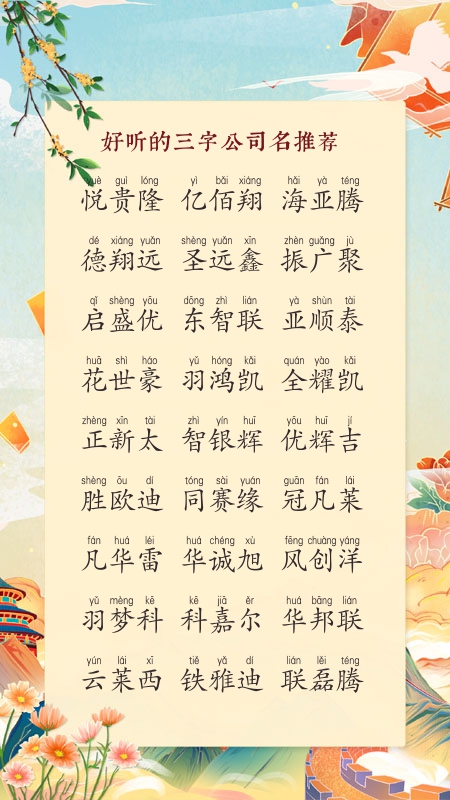 好听的三字公司名推荐
yuè guì lóng yì bǎi xiáng hǎi yà téng
悦贵隆 亿佰翔 海亚腾
dé xiáng yuǎn shèng yuǎn xīn zhèn guǎng jù
德翔远 圣远鑫 振广聚
qǐ shèng yōu dōng zhì lián yà shùn tài
启盛优 东智联 亚顺泰
huā shì háo yǔ hóng kǎi quán yào kǎi
花世豪 羽鸿凯 全耀凯
zhèng xīn tài zhì yín huī yōu huī jí
正新太 智银辉 优辉吉
shèng ōu dí tóng sài yuán guān fán lái
胜欧迪 同赛缘 冠凡莱
fán huá léi huá chéng xù fēng chuàng yáng
凡华雷 华诚旭 风创洋
yǔ mèng kē kē jiā ěr huá bāng lián
羽梦科 科嘉尔 华邦联
yún lái xī tiě yǎ dí lián lěi téng
云莱西 铁雅迪 联磊腾